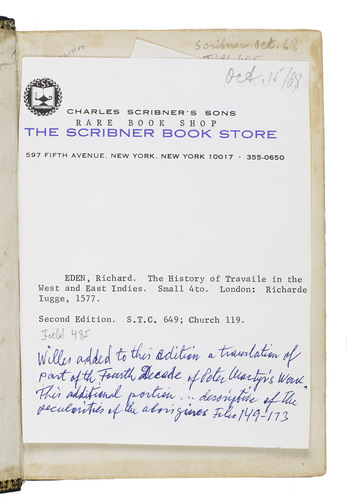 Scribner Oct. 68
Oct. 15/68
CHARLES SCRIBNER'S SONS
RARE BOOK SHOP
THE SCRIBNER BOOK STORE
597 FIFTH AVENUE, NEW YORK, NEW YORK 10017 · 355-0650
EDEN, Richard. The History of Travaile in the
West and East Indies. Small 4to. London: Richarde
Iugge, 1577.
Second Edition. S.T.C. 649; Church 119.
Field 485
Willes added to this edition a translation of
part of th Fourth Decade of Peter Martyr's Work.
This additional portion ... descriptive of the
peculiarities of the aborigines Folios 149-173